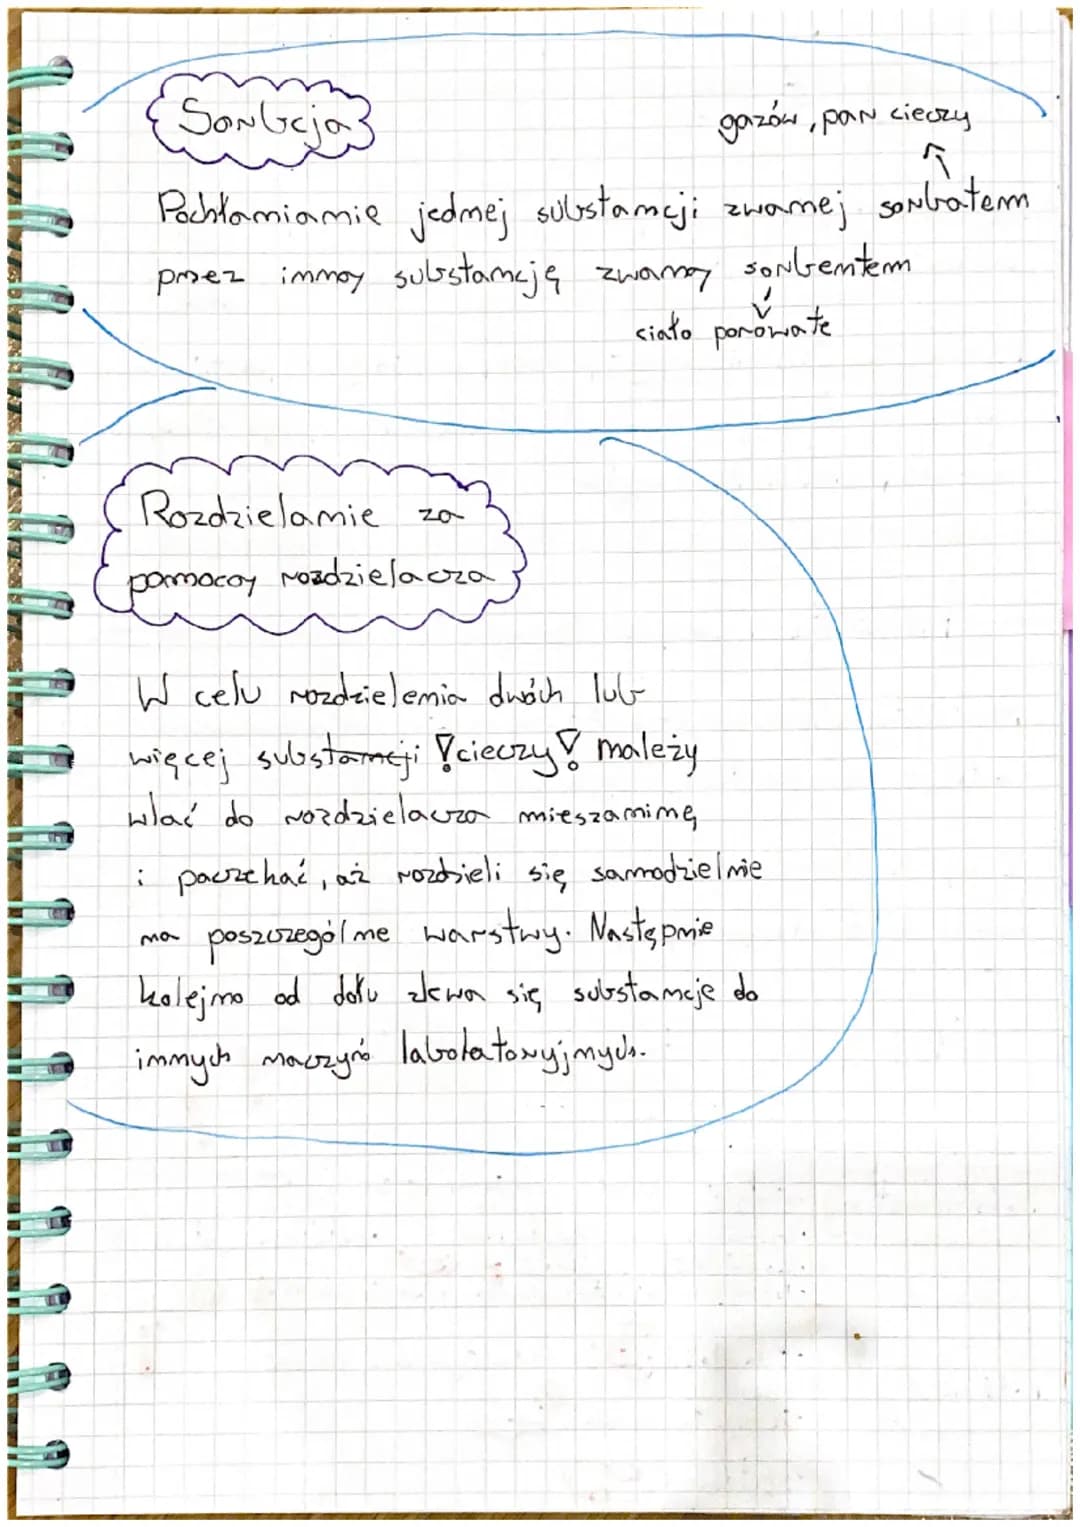 Sorbcja
gazów, par cieczy
Pochłanianie jednej substancji zwanej sorbatem
przez inną substancję zwaną sorbentem
ciało porowate
Rozdzielanie za
pomocą rozdzielacza
W celu rozdzielenia dwóch lub
więcej substancji !cieczy! należy
wlać do rozdzielacza mieszaninę
i poczekać, aż rozdzieli się samodzielnie
na poszczególne warstwy. Następnie
kolejno od dołu zlewa się substancje do
innych naczyń labolatoryjnych.